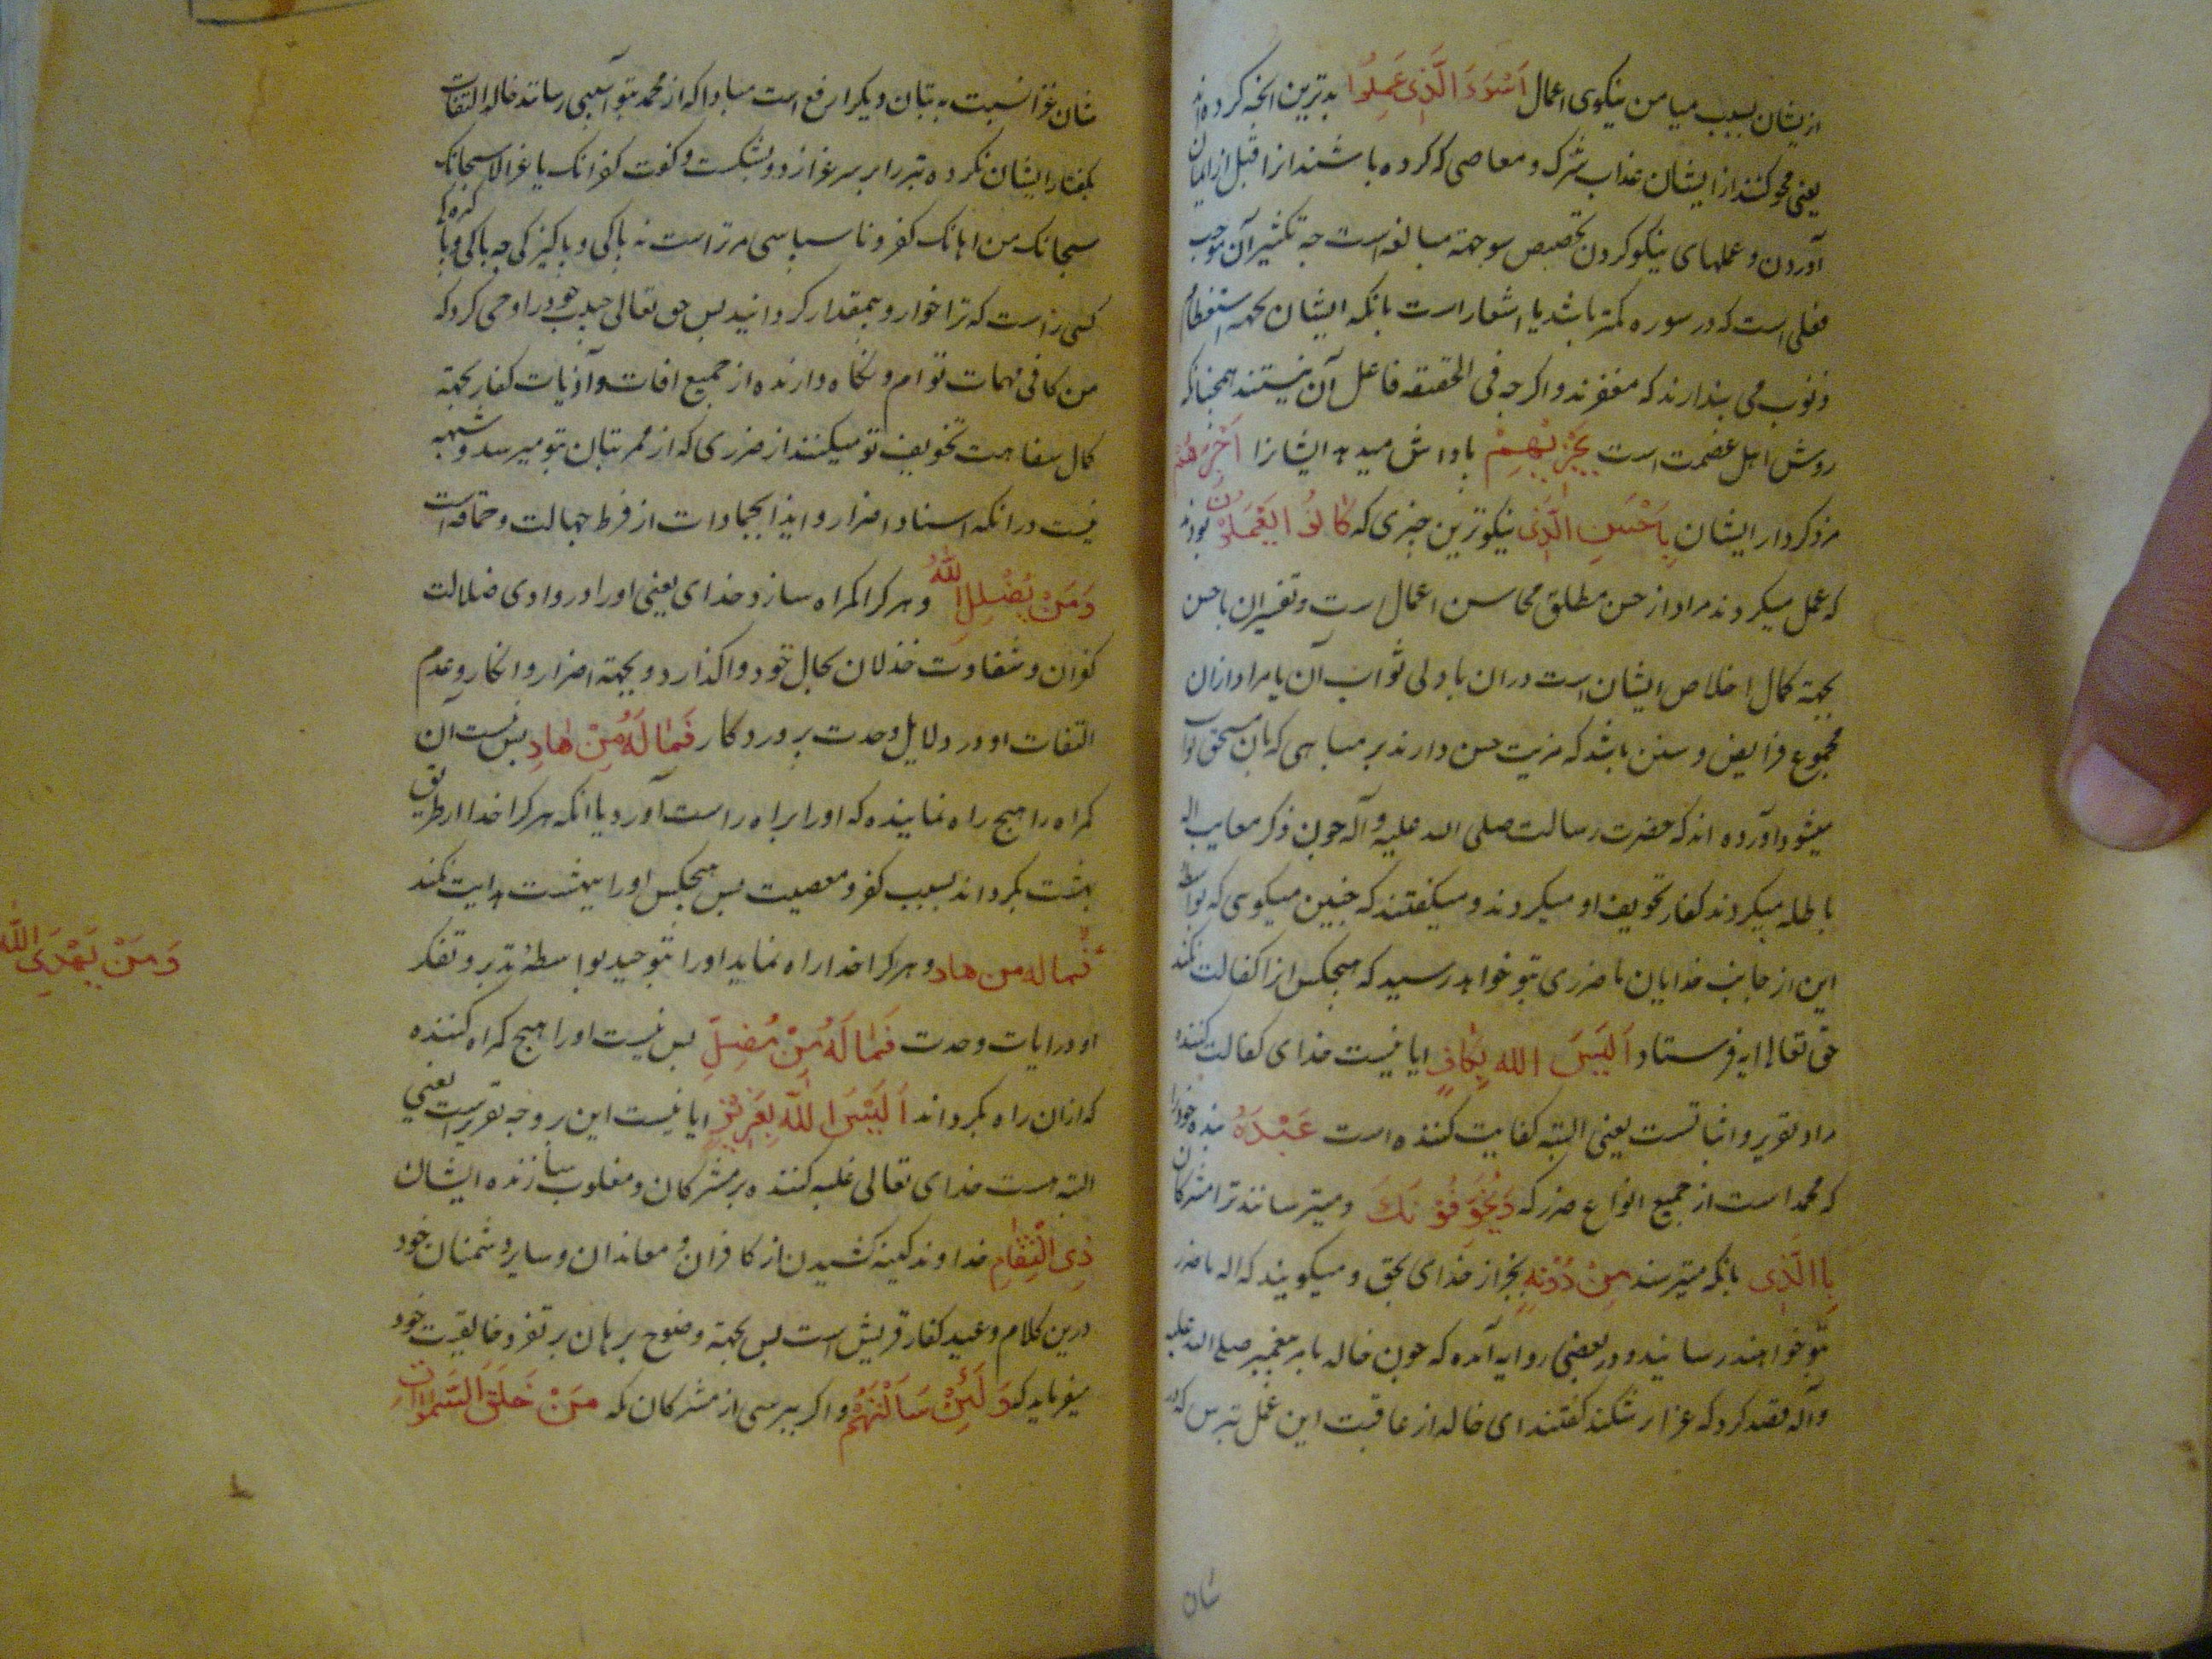 ازیشان بسبب میامن نیکوی اعمال اَسْوَءَ الَّذِی عَمِلُوا بدترین انچه کرده اند
یعنی محو کند از ایشان عذاب شرک و معاصی که کرده باشند انرا قبل از ایمان
آوردن و عملهای نیکو کردن تخصیص سو جهته مبالغه است چه تکثیر آن موجب
فعلی است که در سوره کمتر باشد یا اشعار است بانکه ایشان بجهه استعظام
ذنوب می پندارند که مغفرند و اکرچه فی الحقیقه فاعل آن نیستند همچنانکه
روش اهل عصمت است یَجْزِیَهُمْ باداش میدهد ایشانرا اَجْرَهُمْ
مزد کردار ایشان بِاَحْسَنِ الَّذِی نیکوترین چیزی که کانُوا یَعْمَلُونَ بودند
که عمل میکردند مراد از حسن مطلق محاسن اعمال است و تفسیر ان باحسن
بجهة کمال اخلاص ایشان است دران یا دلی ثواب آن یا مراد ازان
مجموع فرایض و سنن باشد که مزیت حسن دارند بر مباحی که بان مستحق ثواب
میشود آورده اند که حضرت رسالت صلی الله علیه و آله چون ذکر معایب اله
باطله میکردند کفار تخویف او میکردند و میکفتند که چنین میکوی که بواسطه
این از جانب خدایان ما ضرری بتو خواهد رسید که هیچکس انرا کفالت نکند
حق تعالی ایه فرستاد اَلَیْسَ الله بِکافٍ ایا نیست خدای کفالت کننده
مراد تقریر و اثباتست یعنی البته کفایت کننده است عَبْدَهُ بنده خود را
که محمد است از جمیع انواع ضرر که وَیُخَوِّفُوْنَکَ و میترسانند ترا مشرکان
بِاالَّذِی بانکه میترسند مِنْ دُوْنِهِ بجز از خدای بحق و میکویند که اله ما ضرر
بتو خواهند رسانید و در بعضی روایه آمده که چون خالد بامر پیغمبر صلی الله علیه
و آله قصد کرد که عزا را بشکند کفتند ای خالد از عاقبت این عمل بترس که در
شان
شان عزا نسبت به بتان دیکر ارفع است مبادا که از محمد بتو آسیبی رساند خالد التفات
بکفتار ایشان نکرده تبر را بر سر عزا زد و بشکست و کفت کفرانک یا عزا لا سبحانک
سبحانک من اهانک کفر و ناسپاسی مر تراست نه پاکی و پاکیزکی چه پاکی و پاکیزه کی
کسی راست که ترا خوار و بیمقدار کردانید پس حق تعالی حبیب خود را وحی کرد که
من کافی مهمات توام و نکاه دارنده از جمیع افات و آذیات کفار بجهة
کمال سفاهت تخویف تو میکنند از ضرری که از ممر بتان بتو میرسد و شبهه
نیست در انکه اسناد اضرار و ایذا بجمادات از فرط جهالت و حماقه است
وَمَنْ یُضْلِلِ اللهُ و هر کرا کمراه سازد خدای یعنی اورا در وادی ضلالت
کفران و شقاوت خذلان بحال خود واکذارد و بجهة اضرار و انکار و عدم
التفات او در دلایل وحدت پروردکار فَمالَهُ مِنْ هادٍ پس نیست آن
کمراه را هیچ راه نماینده که اورا براه راست آورد یا انکه هر کرا خدا از طریق
بهشت بکرداند بسبب کفر و معصیت پس هیچکس اورا ببهشت هدایت نکند
فماله من هاد و هر کرا خدا راه نماید اورا بتوحید بواسطهٔ تدبر و تفکر
وَمَنْ یَهْدِی اللّه
او در ایات وحدت فَمالَهُ مِنْ مُضِلٍّ پس نیست اورا هیچ کمراه کننده
که ازان راه بکرداند اَلَیْسَ اللّهُ بِعَزِیْزٍ ایا نیست این بر وجه تقریر است یعنی
البته هست خدای تعالی غلبه کننده بر مشرکان و مغلوب سازنده ایشان
ذِی انْتِقامٍ خداوند کینه کشیدن از کافران و معاندان و سایر دشمنان خود
درین کلام وعید کفار قریش است پس بجهة وضوح برهان بر تفرد خالقیت خود
میفرماید که وَلَئِنْ سَاَلْتَهُمْ و اکر بپرسی از مشرکان مکه مَنْ خَلَقَ السَّمواتِ